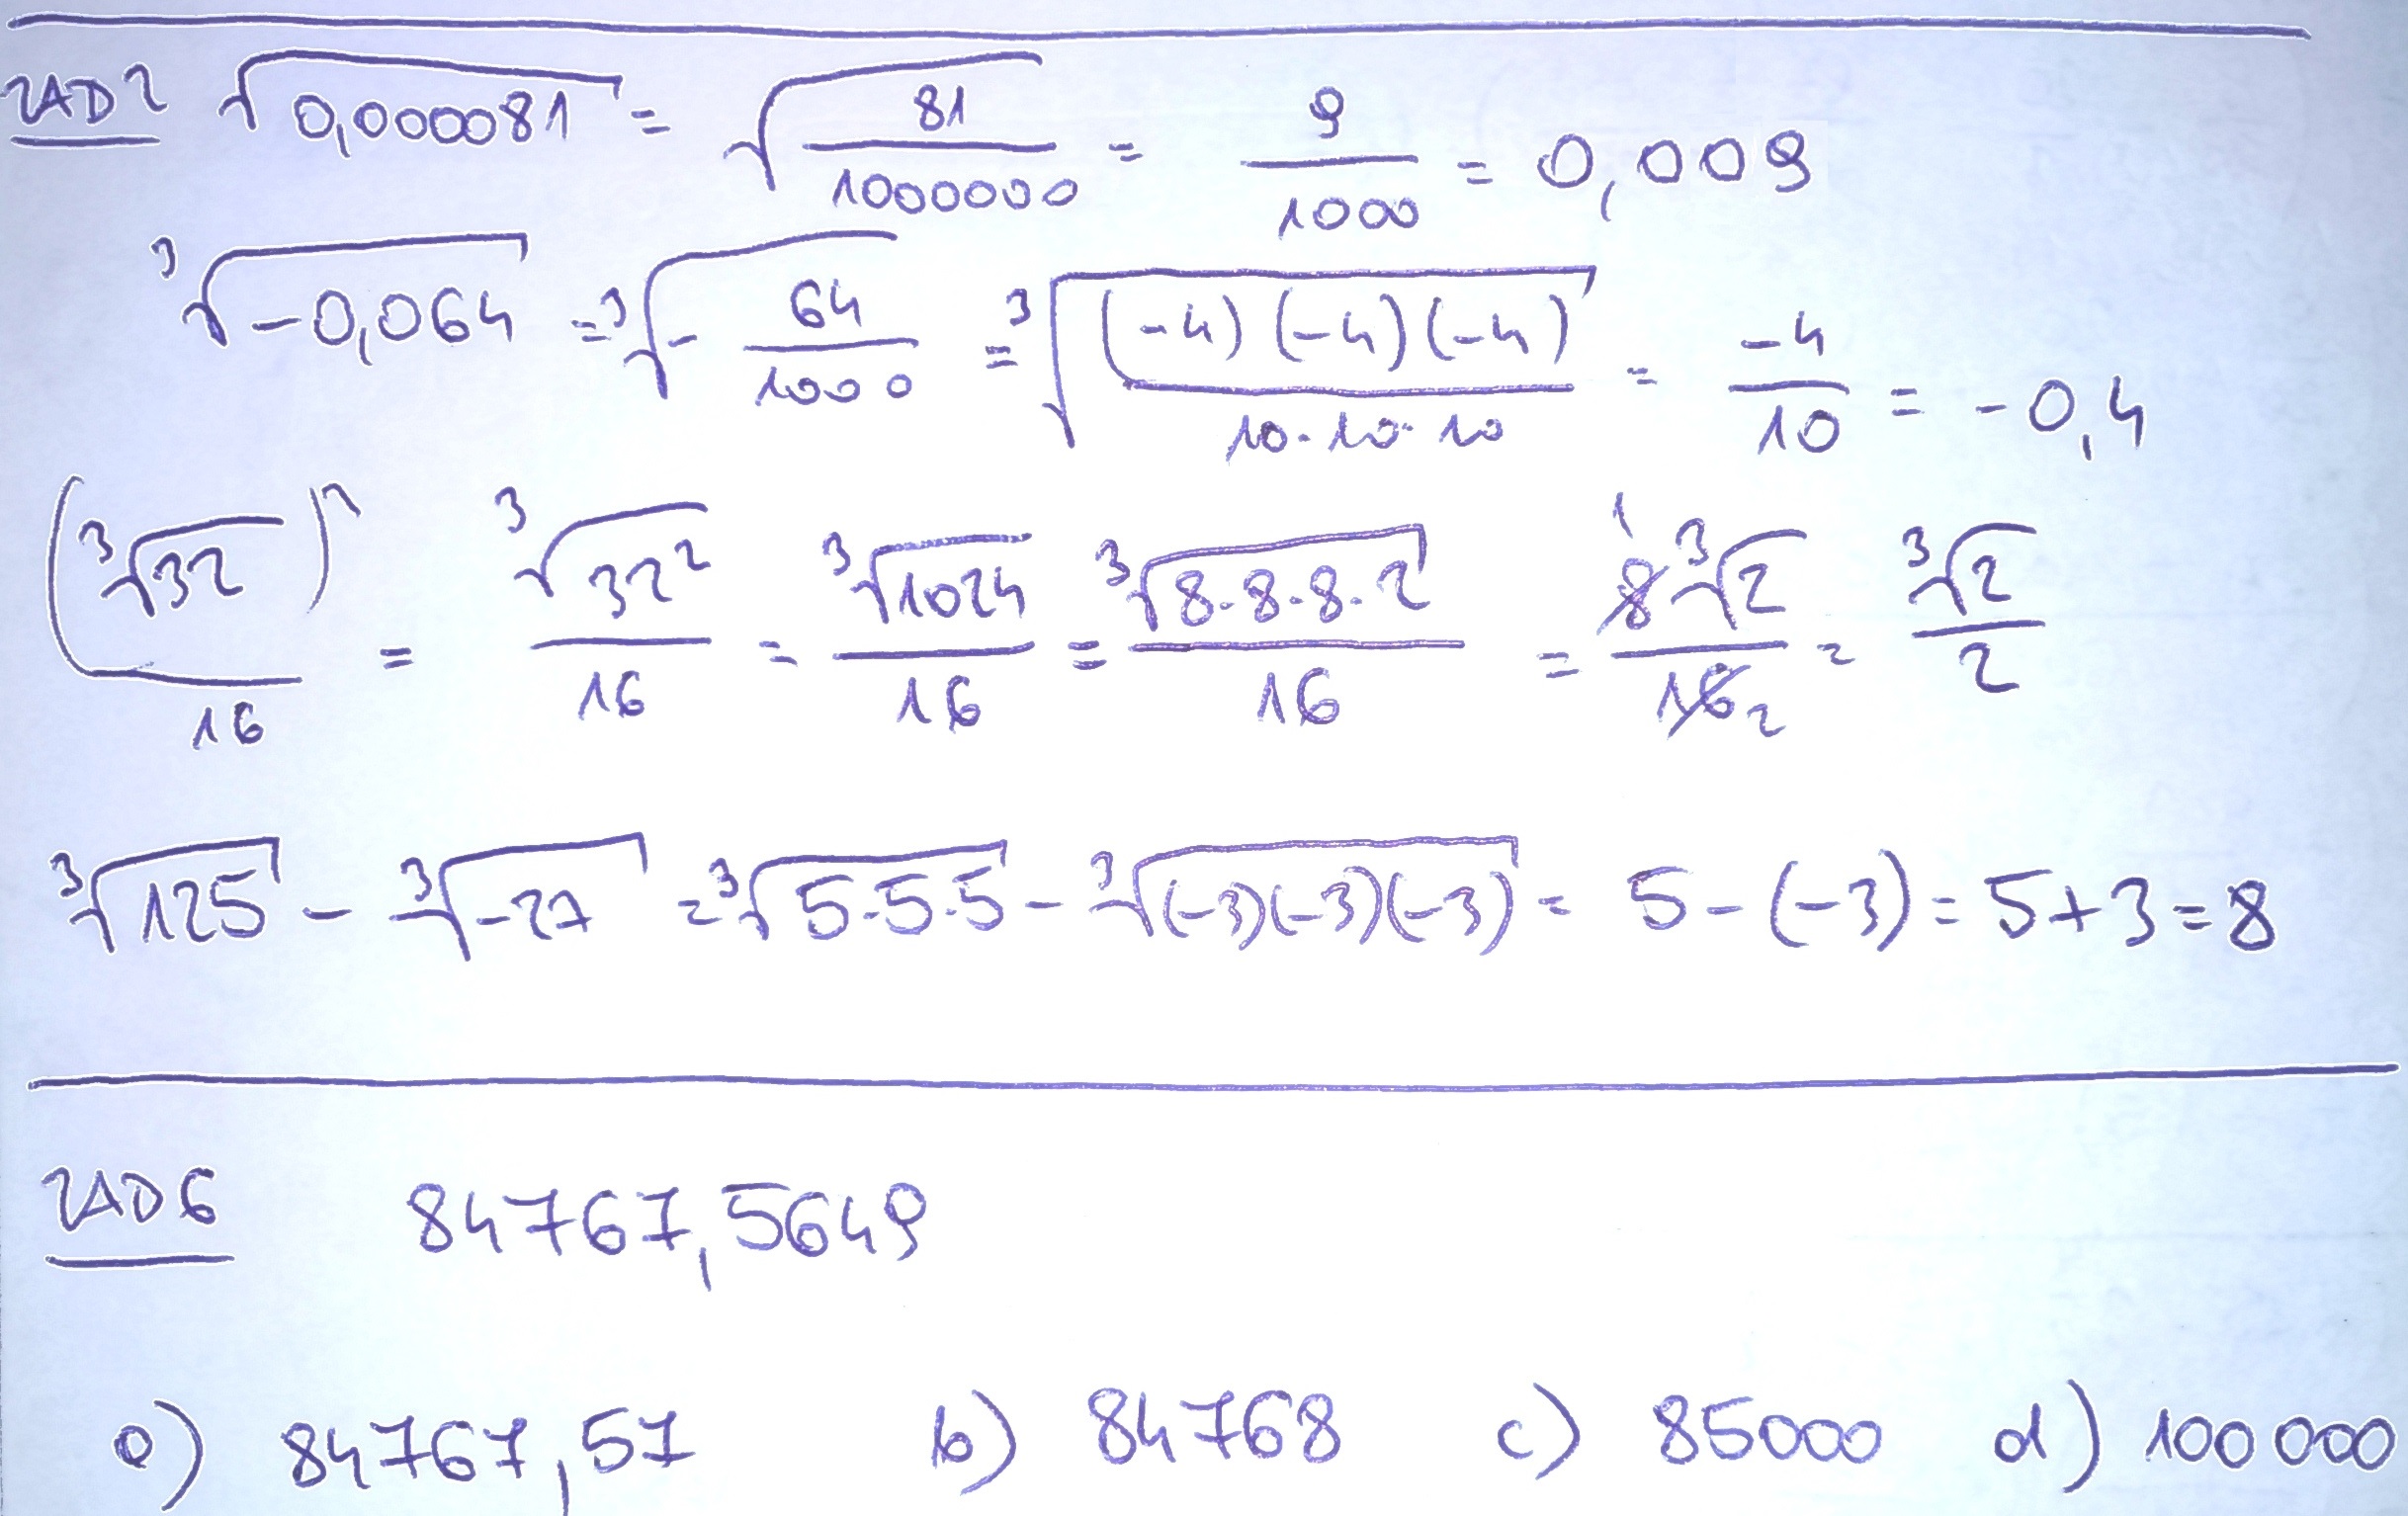 ZAD 2 √0,000081 = √(81/1000000) = 9/1000 = 0,009
³√-0,064 = ³√(-64/1000) = ³√((-4)(-4)(-4)/(10·10·10)) = -4/10 = -0,4
(³√32)²/16 = ³√32²/16 = ³√1024/16 = ³√8·8·8·2/16 = 8³√2/16 1 2 = ³√2/2
³√125 - ³√-27 = ³√5·5·5 - ³√(-3)(-3)(-3) = 5-(-3) = 5+3 = 8
ZAD 6 84767,5649
a) 84767,57 b) 84768 c) 85000 d) 100 000